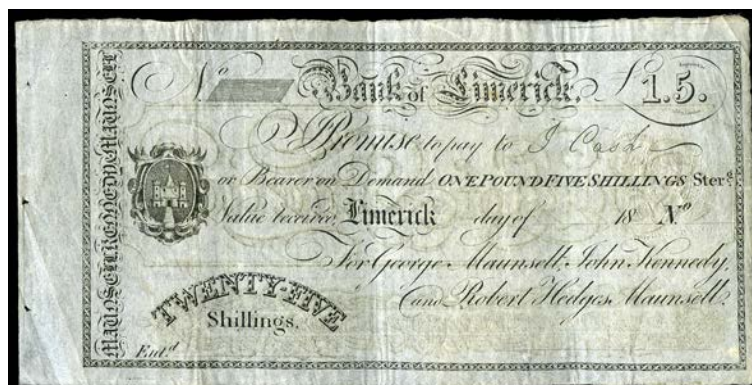 MAUNSELL KENNEDY MAUNSELL
No Bank of Limerick. £1.5.
I Promise to pay to J Cash
or Bearer on Demand ONE POUND FIVE SHILLINGS Sterg
Value received, Limerick day of 18 No
For George Maunsell, John Kennedy,
and Robert Hedges Maunsell.
TWENTY-FIVE
Shillings.
Entd